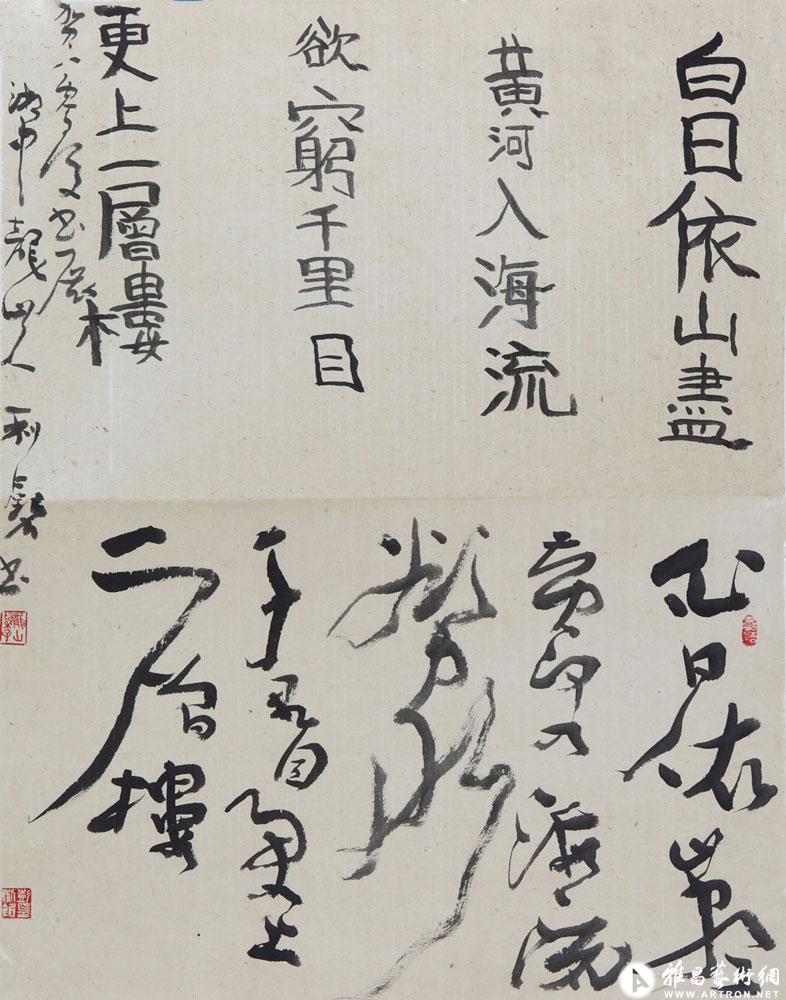 白日依山盡
黃河入海流
欲窮千里目
更上一層樓
白日依山盡
黃河入海流
欲窮
千里目更上
一層樓
雅昌藝術網
WWW.ARTRON.NET